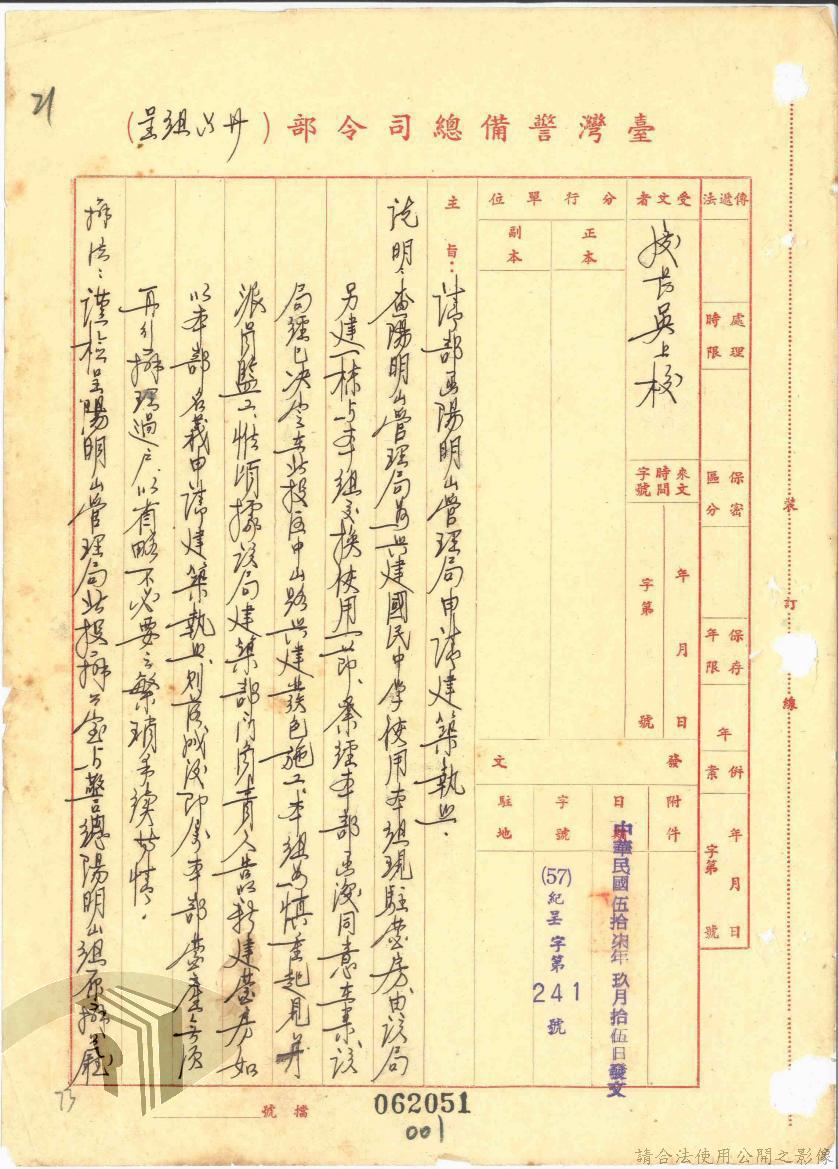 21
臺灣警備總司令部（丹公組呈）
傳遞法
處理時限
保密區分
保存年限
年
併案
年月日
字第
號
受文者
吳上校
來文時間字號
年月日
字第
號
分行單位
正本
副本
發文
附件
日期
中華民國伍拾柒年玖月拾伍日發文
字號
(57)紀呈字第241號
駐地
主旨：請部函陽明山管理局申請建築執照．
說明：查陽明山管理局為興建國民中學使用本組現駐營房，由該局
另建一棟與本組交換使用一節，業經本部函復同意在案，該
局經已決定在北投區中山路興建，發包施工，本組為慎重起見，並
派員監工，惟頃據該局建築部門負責人告以新建營房如
以本部名義申請建築執照，則落成後即屬本部營產，無須
再行辦理過戶，以省略不必要之繁瑣手續等情．
辦法：謹檢呈陽明山管理局北投辦公室與警總陽明山組原辦
檔號
062051
001
73
裝訂線
請合法使用公開之影像